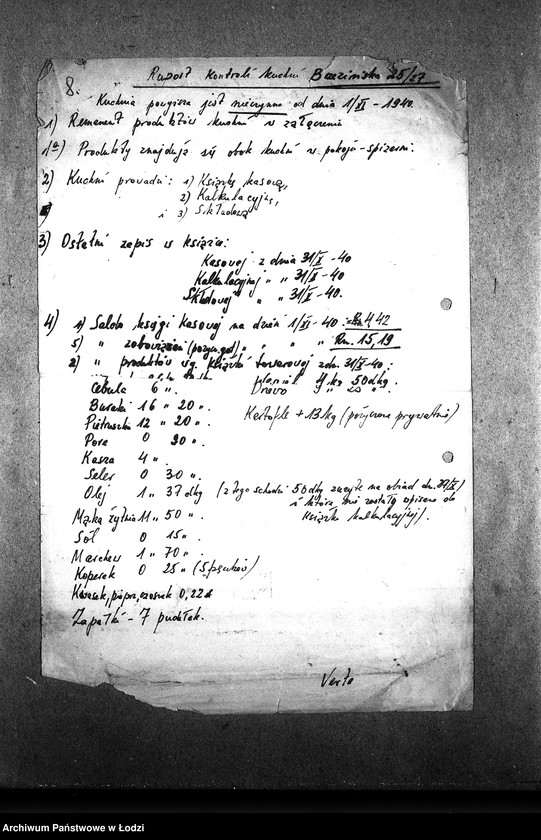 8.
Raport kontroli kuchni Brzezińska 25/27
Kuchnia powyższa jest nieczynna od dnia 1/XI - 1940.
1) Remanent produktów kuchni w załączeniu
1a) Produkty znajdują się obok kuchni w pokoju-spiżarni.
2) Kuchni prowadzi: 1) Książkę kasową,
2) Kalkulacyjną,
i 3) Składową
3) Ostatni zapis w książce:
Kasowej z dnia 31/X - 40
Kalkulacyjnej " " 31/X - 40
Składowej " " 31/X - 40.
4) 1) Saldo księgi kasowej na dzień 1/XI - 40: 4,42
" zobowiązań " " " " Rm. 15,19
2) " produktów wg. książki towarowej z dn. 31/X - 40:
Cebula 6 " . Drewo
4 kg 50 dkg.
Buraki 16 " 20 " . Kartofle + 13 kg (pożyczone prywatnie)
Pietruszka 12 " 20 " .
Pore 0 90 " .
Kasza 4 " .
Seler 0 30 " .
Olej 1 " 37 dkg (z tego schodzi 50 dkg na obiad dn. 31/X)
i które nie zostały wpisane do
Mąka żytnia 11 " 50 " . książki kalkulacyjnej).
Sól 0 15 " .
Marchew 1 " 70 " .
Koperek 0 25 " (5 pęczków)
Kwasek, pieprz, czosnek 0,22
Zapałki - 7 pudełek.
Verte
Archiwum Państwowe w Łodzi